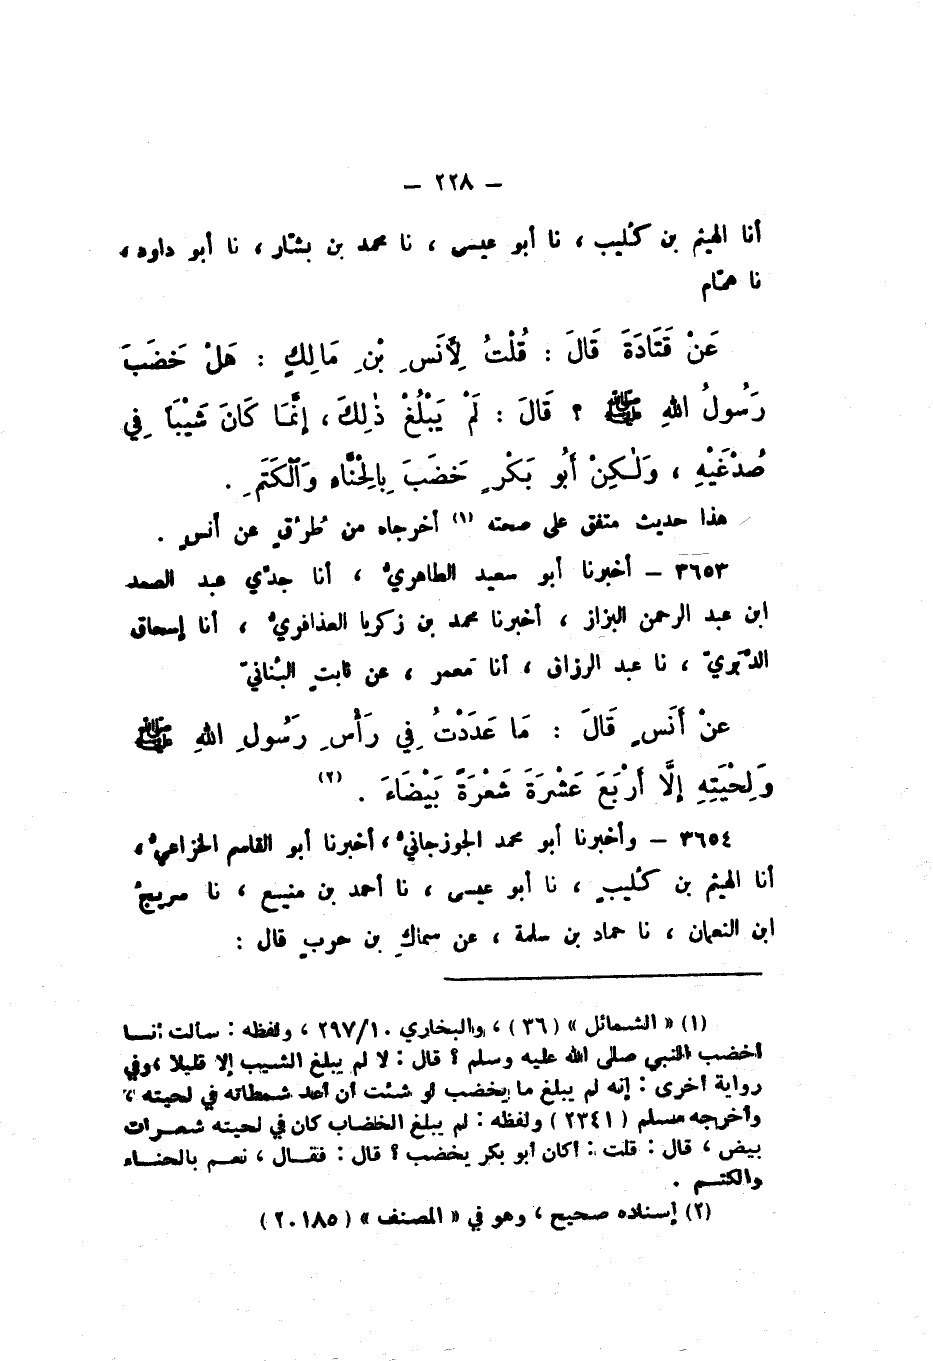 — ٢٢٨ —
أنا الهيثم بن كُليب ، نا أبو عيسى ، نا محمد بن بشّار ، نا أبو داود ،
نا همّام
عَنْ قَتَادَةَ قَالَ : قُلْتُ لِأَنَسِ بْنِ مَالِكٍ : هَلْ خَضَبَ
رَسُولُ اللهِ ﷺ ؟ قَالَ : لَمْ يَبْلُغْ ذٰلِكَ ، إِنَّمَا كَانَ شَيْبَاً فِي
صُدْغَيْهِ ، وَلٰكِنْ أَبُو بَكْرٍ خَضَبَ بِالحْنَّاءِ وَالْكَتَمِ .
هذا حديث متفق على صحته (١) أخرجاه من طُرُقٍ عن أنسٍ .
٣٦٥٣ – أخبرنا أبو سعيد الطاهريُّ ، أنا جدّي عبد الصمد
ابن عبد الرحمن البزاز ، أخبرنا محمد بن زكريا العذافريُّ ، أنا إسحاق
الدَّبَريّ ، نا عبد الرزاق ، أنا مَعمر ، عن ثابتٍ البُنانيّ
عنْ أَنَسٍ قَالَ : مَا عَدَدْتُ فِي رَأْسِ رَسُولِ اللهِ ﷺ
وَلِحْيَتِهِ إِلَّا أَرْبَعَ عَشْرَةَ شَعْرَةً بَيْضَاءَ . (٢)
٣٦٥٤ – وأخبرنا أبو محمد الجوزجانيُّ ، أخبرنا أبو القاسم الخزاعيُّ ،
أنا الهيثم بن كُليبٍ ، نا أبو عيسى ، نا أحمد بن منيع ، نا سريجُ
ابن النعمان ، نا حماد بن سلمة ، عن سماكِ بن حربٍ قال :
(١) « الشمائل » (٣٦) ، والبخاري ٢٩٧/١٠ ، ولفظه : سألت أنسا
أخضب النبي صلى الله عليه وسلم ؟ قال : لا لم يبلغ الشيب إلا قليلا ، وفي
رواية أخرى : إنه لم يبلغ ما يخضب لو شئت أن أعد شمطاته في لحيته ،
وأخرجه مسلم (٢٣٤١) ولفظه : لم يبلغ الخضاب كان في لحيته شعرات
بيض ، قال : قلت : أكان أبو بكر يخضب ؟ قال : فقال ، نعم بالحناء
والكتم .
(٢) إسناده صحيح ، وهو في « المصنف » (٢٠١٨٥)